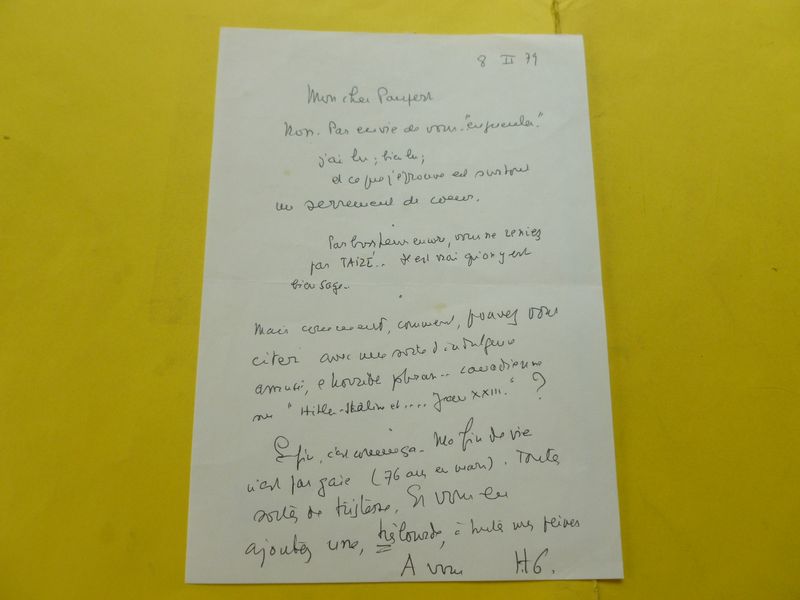 8 II 79
Mon cher Paupert
Non. Pas envie de vous "engueuler".
j'ai lu ; bien lu ;
et ce que j'éprouve est surtout
un serrement de coeur.
Par bonheur encore, vous ne reniez
pas TAIZÉ.. Il est vrai qu'on y est
bien sage.
Mais comment, comment, pouvez vous
citer avec une sorte d'indulgence
amusée, horrible phrase.. canadienne
sur "Hitler-Staline et.... Jean XXIII." ?
Enfin, c'est comme ça. Ma fin de vie
n'est pas gaie (76 ans en mars). Toutes
sortes de tristesse. Et vous en
ajoutez une, très lourde, à toutes mes peines
A vous H G.